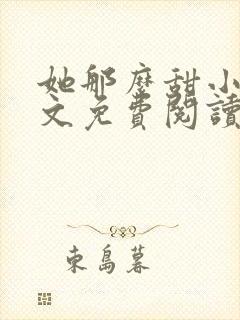 她那麼甜小
文免費閱讀
東島暮